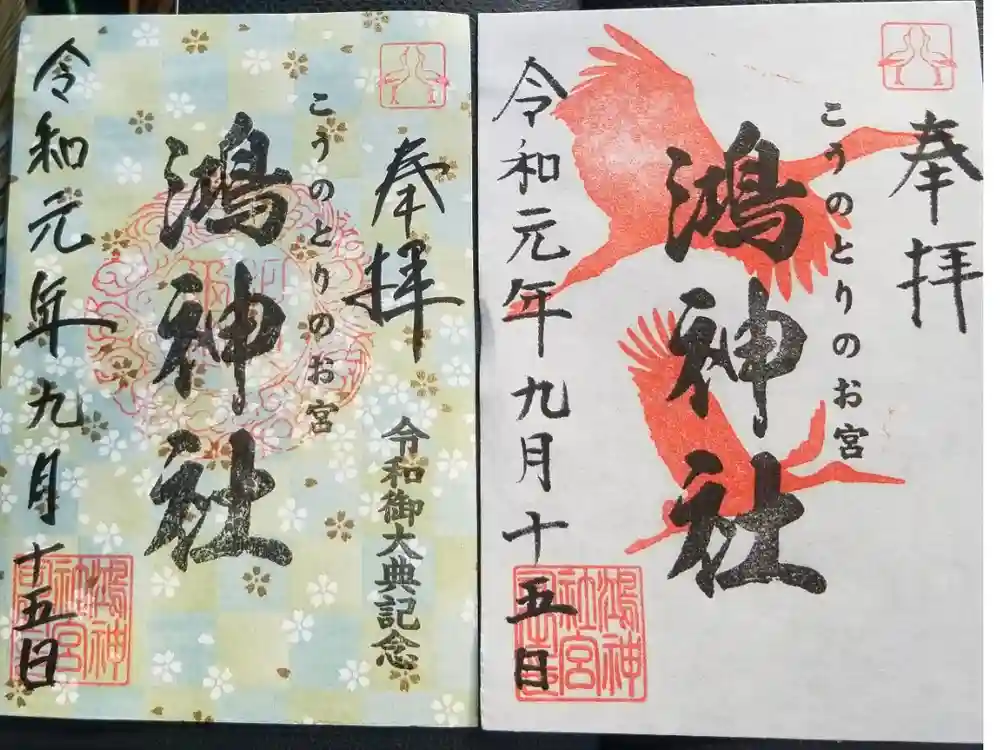 奉拝
令和御大典記念
こうのとりのお宮
鴻神社
令和元年九月十五日
奉拝
こうのとりのお宮
鴻神社
令和元年九月十五日